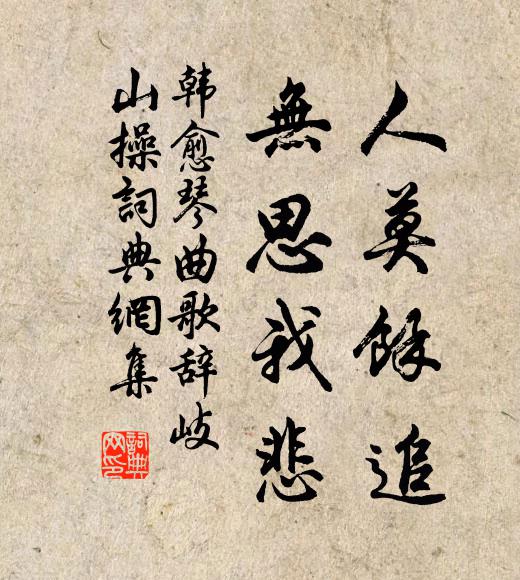 人莫餘追
無思我悲
韩愈琴曲歌辞岐
山操詞典網集
詞典网印